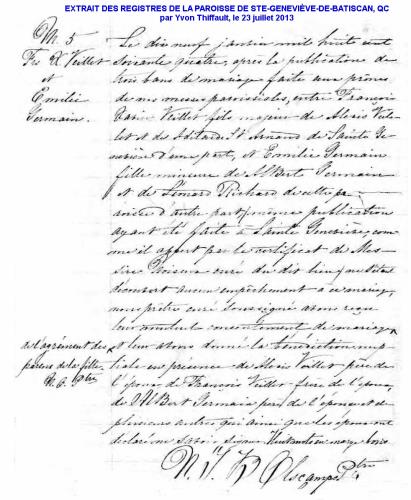 EXTRAIT DES REGISTRES DE LA PAROISSE DE STE-GENEVIÈVE-DE-BATISCAN, QC
par Yvon Thiffault, le 23 juillet 2013
M. 5
Frs X Veillet
et
Emilie
Germain.
Le dix neuf janvier mil huit cent
soixante quatre, après la publication de
trois bans de mariage faite aux prônes
de nos messes paroissiales, entre François
Xavier Veillet fils majeur de Alexis Veil-
let et de Adelaide St Arnaud de Sainte Ge-
neviève d'une part, et Emilie Germain
fille mineure de Germain
et de Richard de cette pa-
roisse d'autre part, même publication
ayant été faite à Sainte Geneviève, com-
me il appert par le certificat de Mes-
sire curé du dit lieu, ne s'étant
découvert aucun empêchement à ce mariage,
nous prêtre curé soussigné avons reçu
leur mutuel consentement de mariage
de l'agrément des
parens de la fille
et leur avons donné la bénédiction nup-
tiale en présence de Alexis Veillet père de
l'époux, de François Veillet frère de l'époux,
de Germain père de l'épouse et de
plusieurs autres qui ainsi que les époux ont
déclaré ne savoir signer